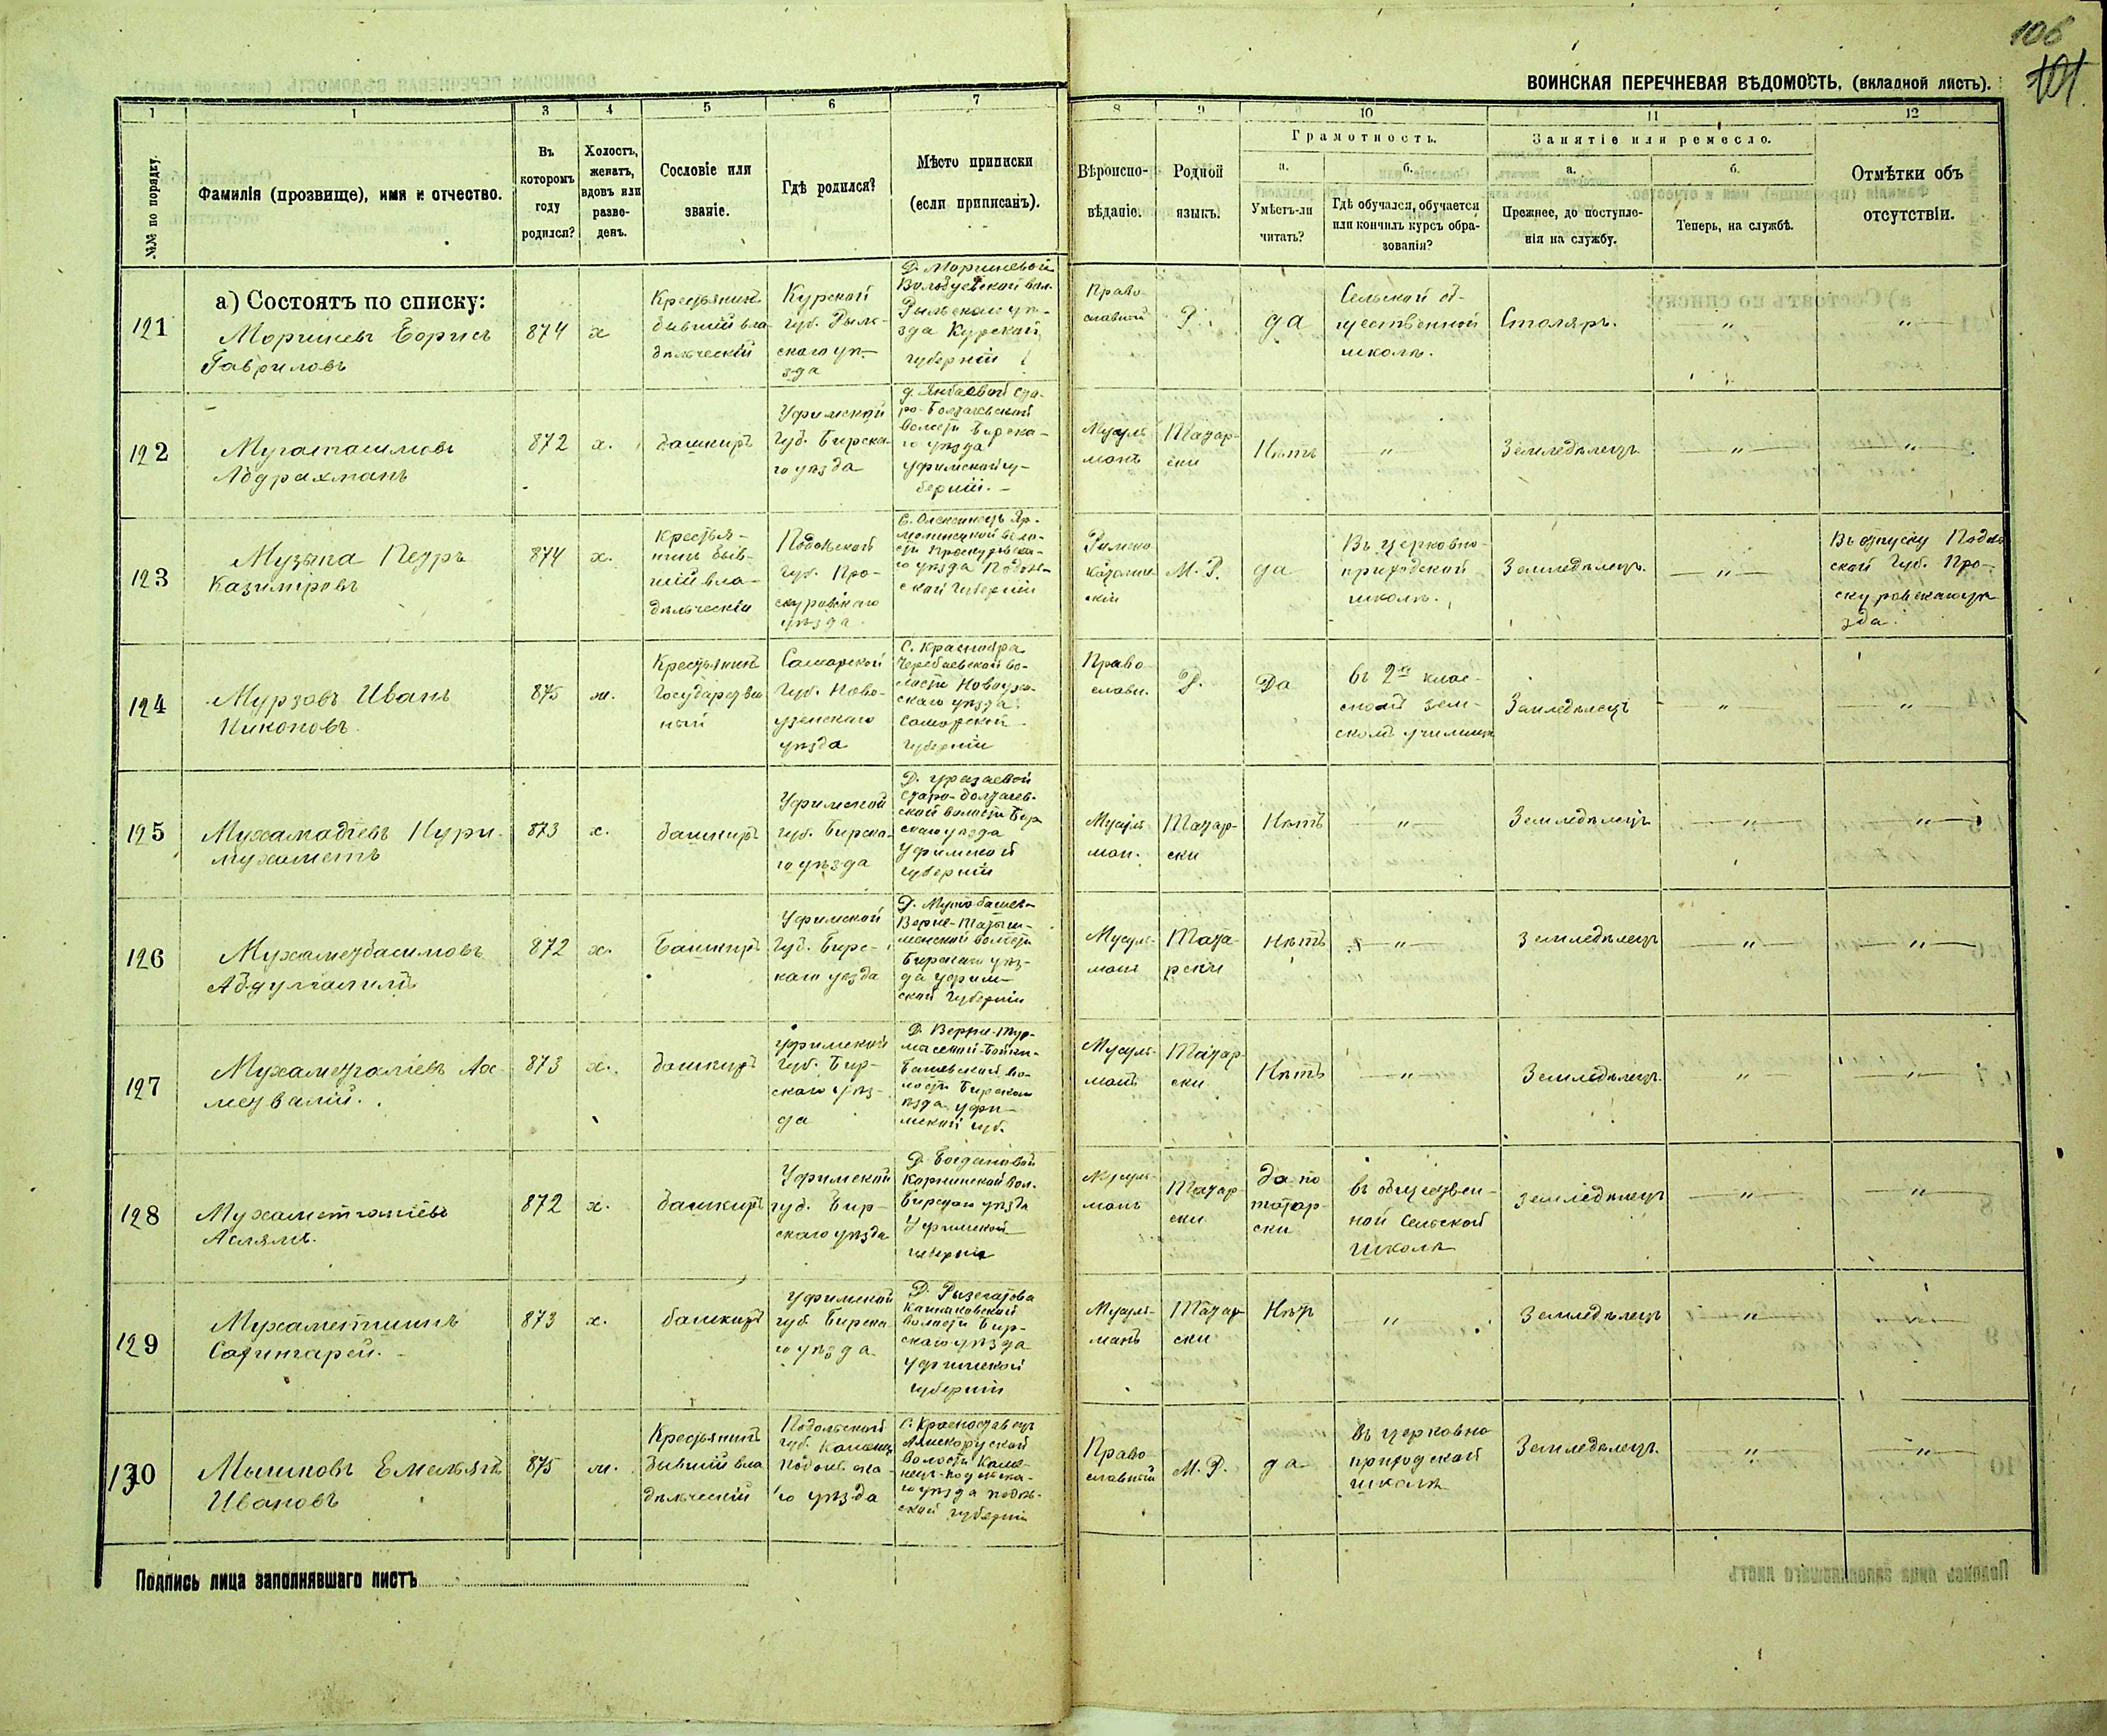 106
101
ВОИНСКАЯ ПЕРЕЧНЕВАЯ ВѢДОМОСТЬ. (вкладной листъ).
1 1 3 4 5 6 7 8 9 10 11 12
№№ по порядку.
Фамилія (прозвище), имя и отчество.
Въ
которомъ
году
родился?
Холостъ,
женатъ,
вдовъ или
разве-
денъ.
Сословіе или
званіе.
Гдѣ родился?
Мѣсто приписки
(если приписанъ).
Вѣроиспо-
вѣданіе.
Родной
языкъ.
Грамотность.
а.
Умѣетъ-ли
читать?
б.
Гдѣ обучался, обучается
или кончилъ курсъ обра-
зованія?
Занятіе или ремесло.
а.
Прежнее, до поступле-
нія на службу.
б.
Теперь, на службѣ.
Отмѣтки объ
отсутствіи.
а) Состоятъ по списку:
121
Моршневъ Борисъ
Гавриловъ
874
х
Крестьянинъ
бывшій вла
дѣльческій
Курской
губ. Рыль-
скаго уѣ-
зда
Д. Моршневой
вол.
Рыльскаго уѣ-
зда Курской
губерніи
Право
славный
Р.
да
Сельской об-
щественной
школѣ.
Столяръ.
"
"
122
Абдрахманъ
872
х.
башкиръ
Уфимской
губ. Бирска-
го уѣзда
д. Янбаевой Ста-
ро-Болтачевской
волости Бирска-
го уѣзда
Уфимской гу-
берніи.
Мусуль
манъ
Татар-
ски
Нѣтъ
"
Земледѣлецъ
"
"
123
Музыка Петръ
Казиміровъ
874
х.
Крестья-
нинъ быв-
шій вла-
дѣльческій
Подольской
губ. Про-
скуровскаго
уѣзда
С. Олешинецъ Яр-
молинецкой воло-
сти Проскуровска-
го уѣзда Подоль-
ской губерніи
Римско
католич
скій
М. Р.
да
Въ церковно-
приходской
школѣ.
Земледѣлецъ
"
Въ отпуску Подол
ской губ. Про-
скуровскаго уѣ
зда.
124
Мурзовъ Иванъ
Никоновъ.
875
ж.
Крестьянинъ
Государствен
ный
Самарской
губ. Ново-
узенскаго
уѣзда
С. Краснояра
Черебаевской во-
лости Новоузен-
скаго уѣзда
Самарской
губерніи
Право
славн.
Р.
Да
въ 2хъ клас-
сномъ зем-
скомъ училищѣ
Земледѣлецъ
"
"
125
Мухамадіевъ Нури-
мухаметъ
873
х.
башкиръ
Уфимской
губ. Бирска-
го уѣзда
Д. Уразаевой
Старо-Болтачев-
ской волости Бир
скаго уѣзда
Уфимской
губерніи
Мусуль
ман.
Татар-
ски
Нѣтъ
"
Земледѣлецъ
"
"
126
Мухаметбасимовъ
872
х.
Башкиръ
Уфимской
губ. Бирс-
каго уѣзда
Д.
Верхне-Татыш-
линской волости
Бирскаго уѣз-
да Уфим-
ской губерніи
Мусуль-
манъ
Тата-
рски
Нѣтъ
"
Земледѣлецъ
"
"
127
Мухаметгаліевъ Ах-
метвалій.
873
х.
башкиръ
Уфимской
губ. Бир-
скаго уѣз-
да
волости Бирскаго
уѣзда Уфи-
мской губ.
Мусуль-
манъ
Татар-
ски
Нѣтъ
"
Земледѣлецъ
"
"
128
Аслямъ.
872
х.
башкиръ
Уфимской
губ. Бир-
скаго уѣзда
Д. Богдановой
вол.
Бирскаго уѣзда
Уфимской
губерніи
Мусуль-
манъ
Татар
ски
да по
татар-
ски
въ обществен-
ной Сельской
школѣ
Земледѣлецъ
"
"
129
Мухаметшинъ
Сафингарей.
873
х.
башкиръ
Уфимской
губ. Бирска
го уѣзда
Д.
волости Бир-
скаго уѣзда
Уфимской
губерніи
Мусуль-
манъ
Татар
ски
Нѣтъ
"
Земледѣлецъ
"
"
130
Мышковъ Емельянъ
Ивановъ
875
ж.
Крестьянинъ
бывшій вла
дѣльческій
Подольской
губ. Каменец
Подольска-
го уѣзда
С. Красноставецъ
волости Каме-
нецъ-Подольска-
го уѣзда Подоль-
ской губерніи
Право
славный
М. Р.
да
Въ церковно
приходской
школѣ
Земледѣлецъ
"
"
Подпись лица заполнявшаго листъ